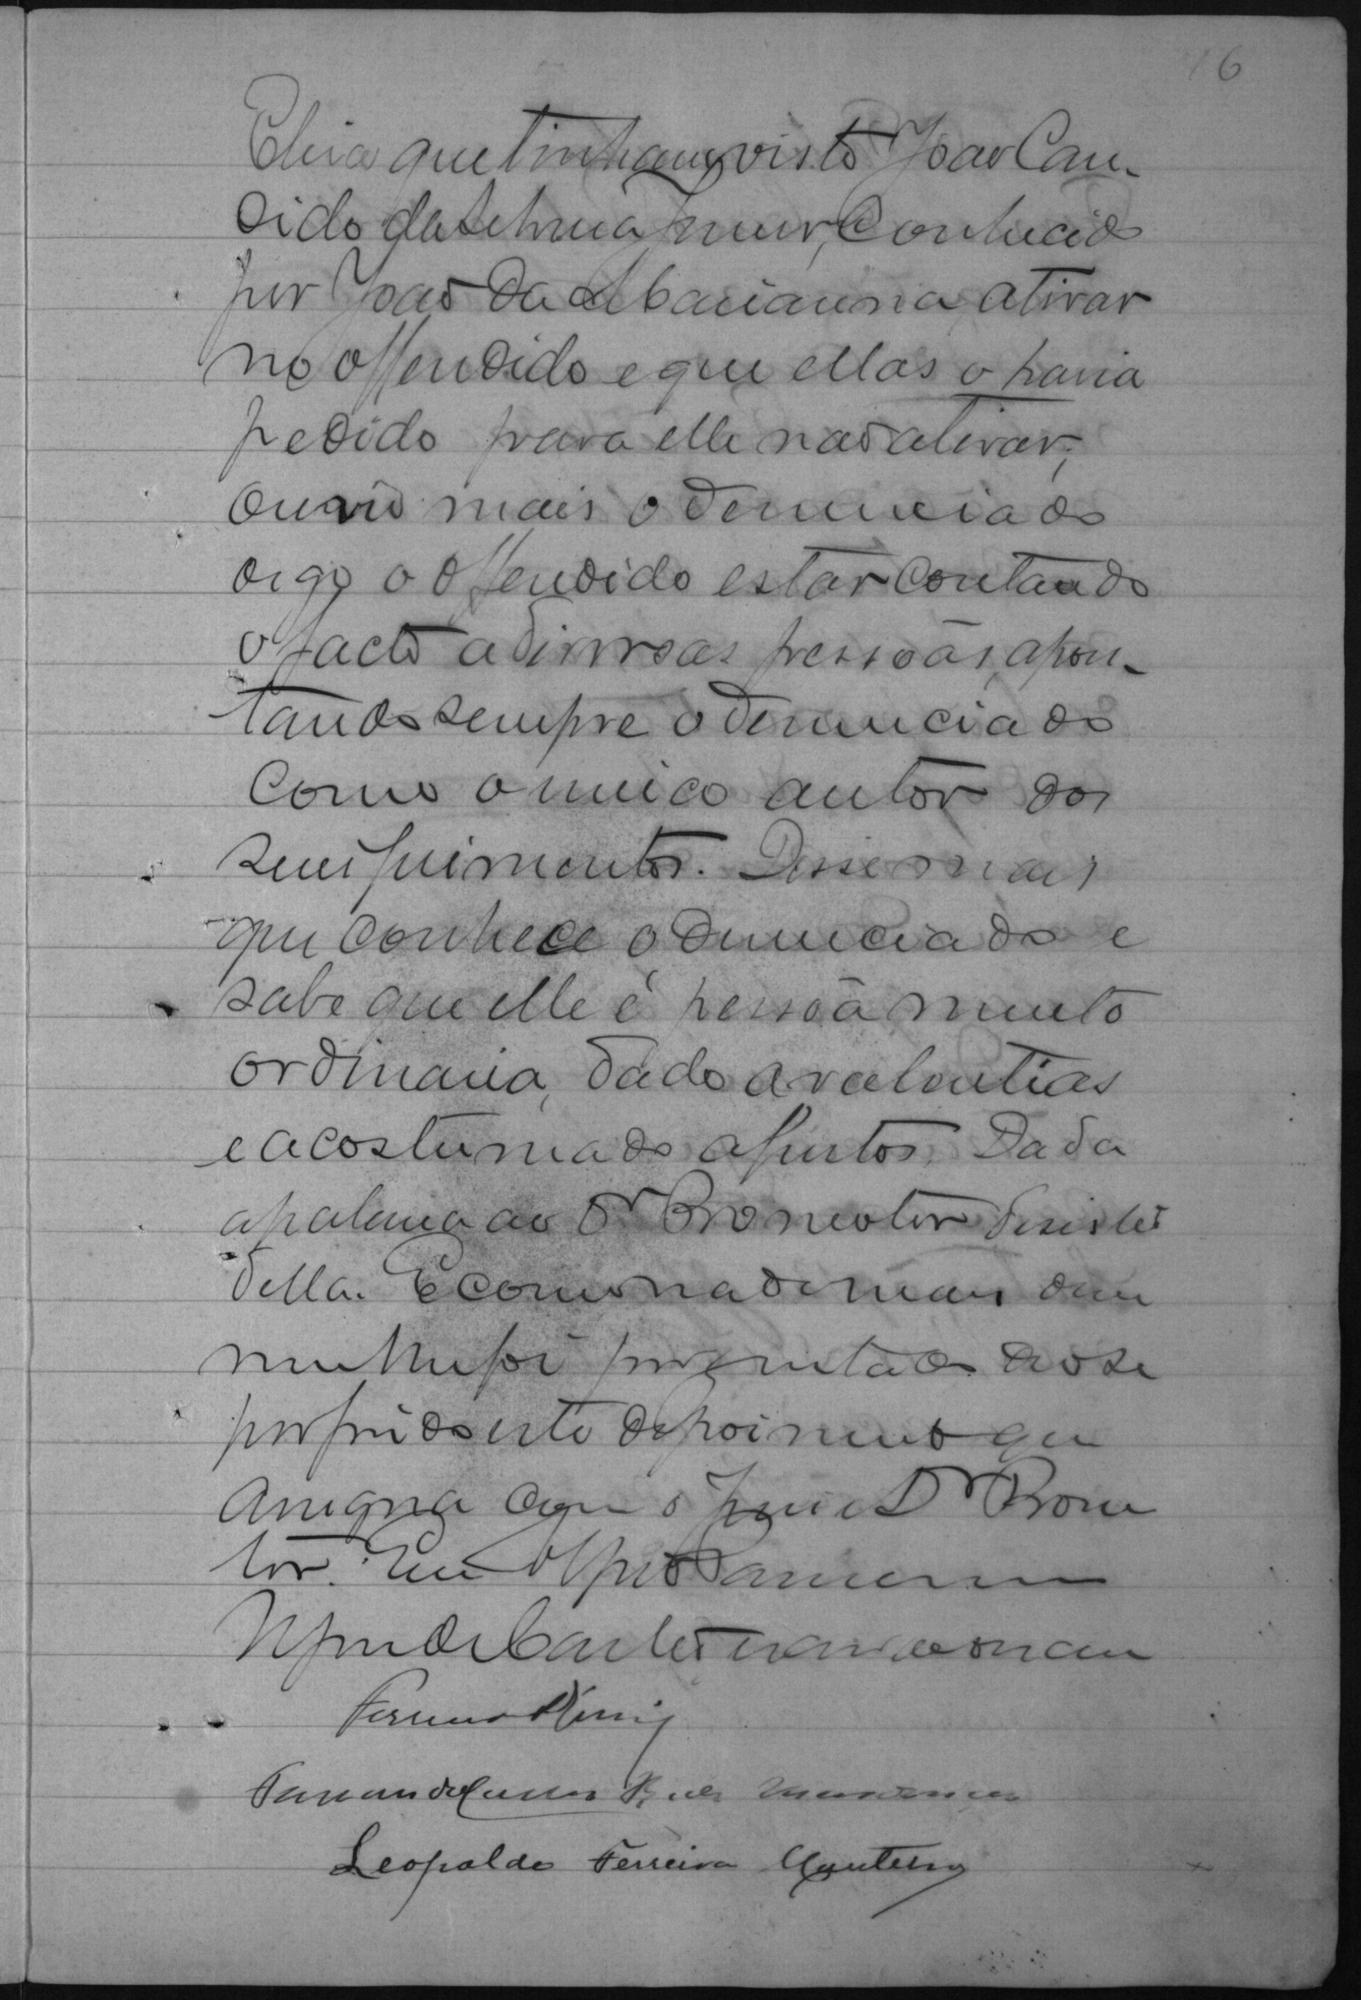 16
Elisa que tinham visto João Can-
dido da Silveira Junior, Conhecido
por João da Marianna atirar
no offendido e que ellas o havia
pedido para elle não atirar;
ouvio mais o denunciado
digo o offendido estar Contando
o facto a diversas pessôas, apon-
tando sempre o denunciado
Como o unico autor dos
seus ferimentos. Disse mais
que conhece o denunciado e
sabe que elle é pessôa muito
ordinaria, dado a valentias
e acostumado a furtos. Dada
a palavra ao Dr Promotor desistio
della. E como nada mais
lhe foi perguntado deo-se
por findo este depoimento que
assigna com o Juiz e Dr Promo
tor. Eu
Fernandes Barros
Leopoldo Ferreira Monteiro